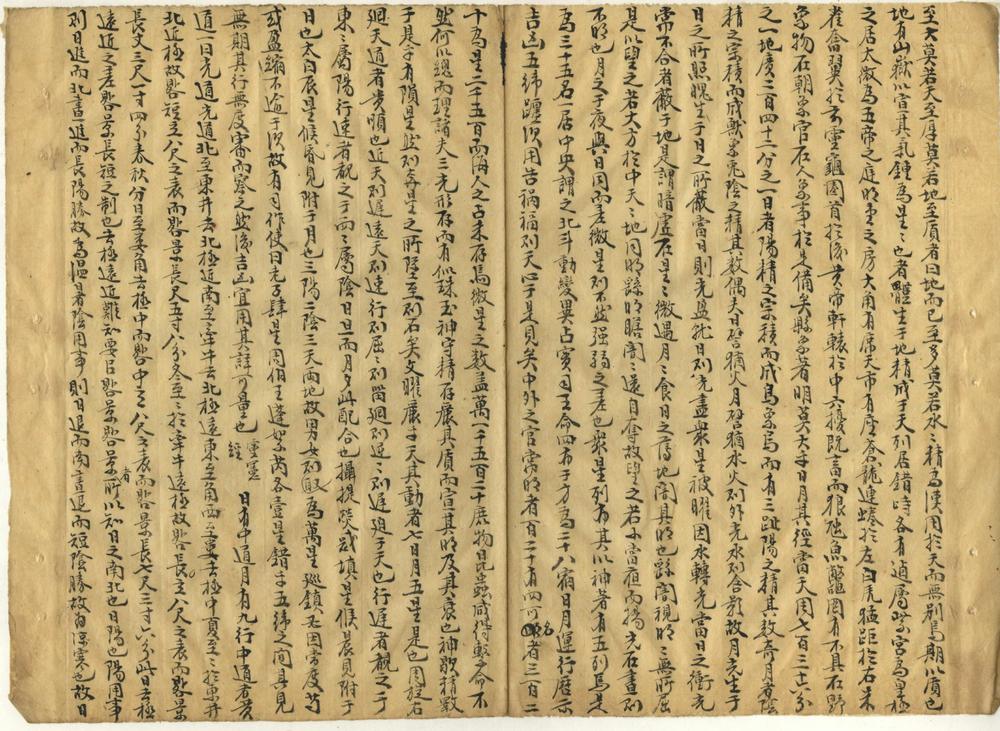 至大莫若天至厚莫若地至質者曰地而已至多莫若水〻精爲漢用於天而無列焉期以質也
地有山嶽以宣其氣鍾爲星〻也者體生于地精成于天列居錯峙各有逌屬紫宮爲皇極
之居太微爲五帝之庭明堂之房大角有席天市有座蒼龍連蜷於左白虎猛距於右朱
雀奮翼於前靈龜圈首於後黃帝軒轅於中六擾既畜而狼蚖魚鼈罔有不具在野
象物在朝象官在人象事於是備矣縣象著明莫大乎日月其徑當天周七百三十六分
之一地廣二百四十二分之一日者陽精之宗積而成鳥象烏而有三趾陽之精其數奇月者陰
精之宗積而成獸象兔陰之精其數偶夫日譬猶火月譬猶水火則外光水則含影故月光生于
日之所照魄生于日之所蔽當日則光盈就日則光盡衆星被曜因水轉光當日之衝光
常不合者蔽于地是謂暗虛在星〻微遇月〻食日之薄地闇其明也繇闇視明〻無所屈
是以望之若大方於中天〻地同明繇明瞻闇〻還自奪故望之若小當夜而揚光在晝則
不明也月之于夜與日同而差微星則不然强弱之差也衆星列布其以神者有五列焉是
爲三十五名一居中央謂之北斗動變異占實司王命四布于方爲二十八宿日月運行歷示
吉凶五緯躔次用告禍福則天心于是見矣中外之官常明者百二十有四可名者三百二
十爲星二千五百而海人之占未存焉微星之數盖萬一千五百二十庶物昆虫咸得繫命不
然何以總而理諸夫三光形存而有似珠玉神守精存麗其質而宣其明及其衰也神歇精斁
于是乎有隕星然則奔星之所墜至則石矣文曜麗乎天其動者七日月五星是也周旋右
廻天道者貴順也近天則遲遠天則速行則屈〻則留廻則逆〻則遲迫于天也行遲者覿之于
東〻屬陽行速者覿之于西〻屬陰日旦而月夕此配合也攝提熒惑填星候晨見附于
日也太白辰星候昏見附于月也三陽二陰三天兩地故男女則取焉方星巡鎮必因常度苟
或盈縮不逾于次故有司作使曰老子肆星周伯王逢絮芮各壹星錯乎五緯之間其見
無期其行無度審而察之然後吉凶宜用其詳可量也 靈憲經 日有中道月有九行中道者黄
道一曰光道〻光道北至東井去北極近南至牽牛去北極遠東至角西至婁去極中夏至〻於東井
北近極故晷短立八尺之表而晷景長尺五寸八分冬至〻於牽牛遠極故晷長立八尺之表而晷景
長丈三尺一寸四分春秋分日至婁角去極中而晷中立八尺之表而晷景長七尺三寸六分此日去極
遠近之差晷景長短之制也去極遠近難知要以晷景晷景者所以知日之南北也日陽也陽用事
則日進而北晝進而長陽勝故爲温暑陰用事則日退而南晝退而短陰勝故爲凉寒也故日